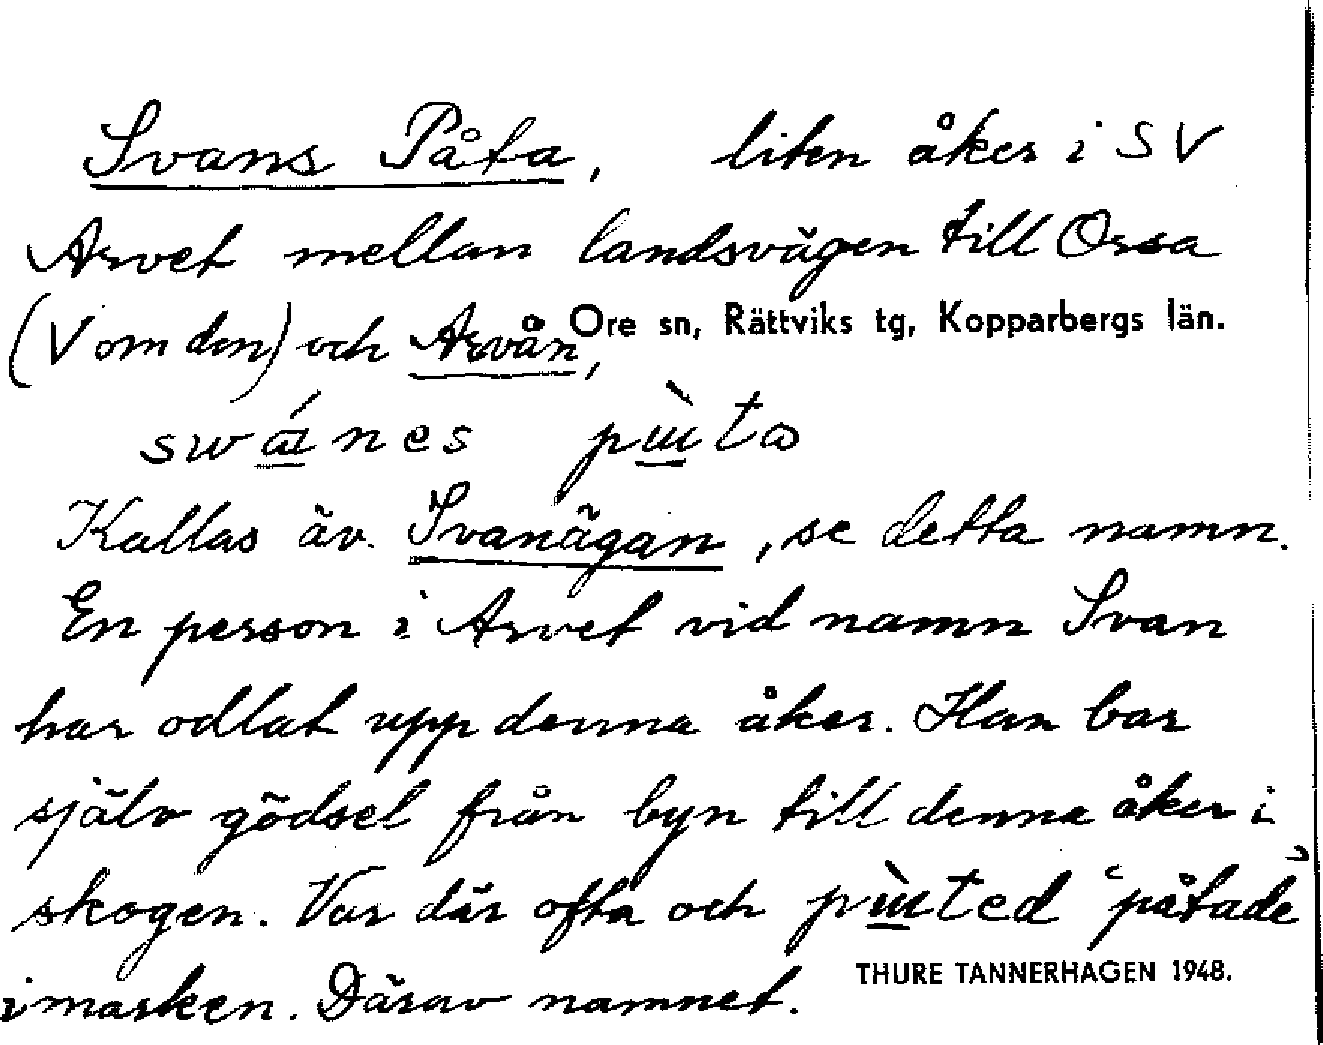 Svans Påta, liten åker i SV
Arvet mellan landsvägen till Orsa
(V om den) och Arvån,
Ore sn, Rättviks tg, Kopparbergs län.
Kallas äv. Svanägan, se detta namn.
En person i Arvet vid namn Svan
har odlat upp denna åker. Han bar
själv gödsel från byn till denna åker i
skogen. Var där ofta och "påtade"
i marken. Därav namnet.
THURE TANNERHAGEN 1948.